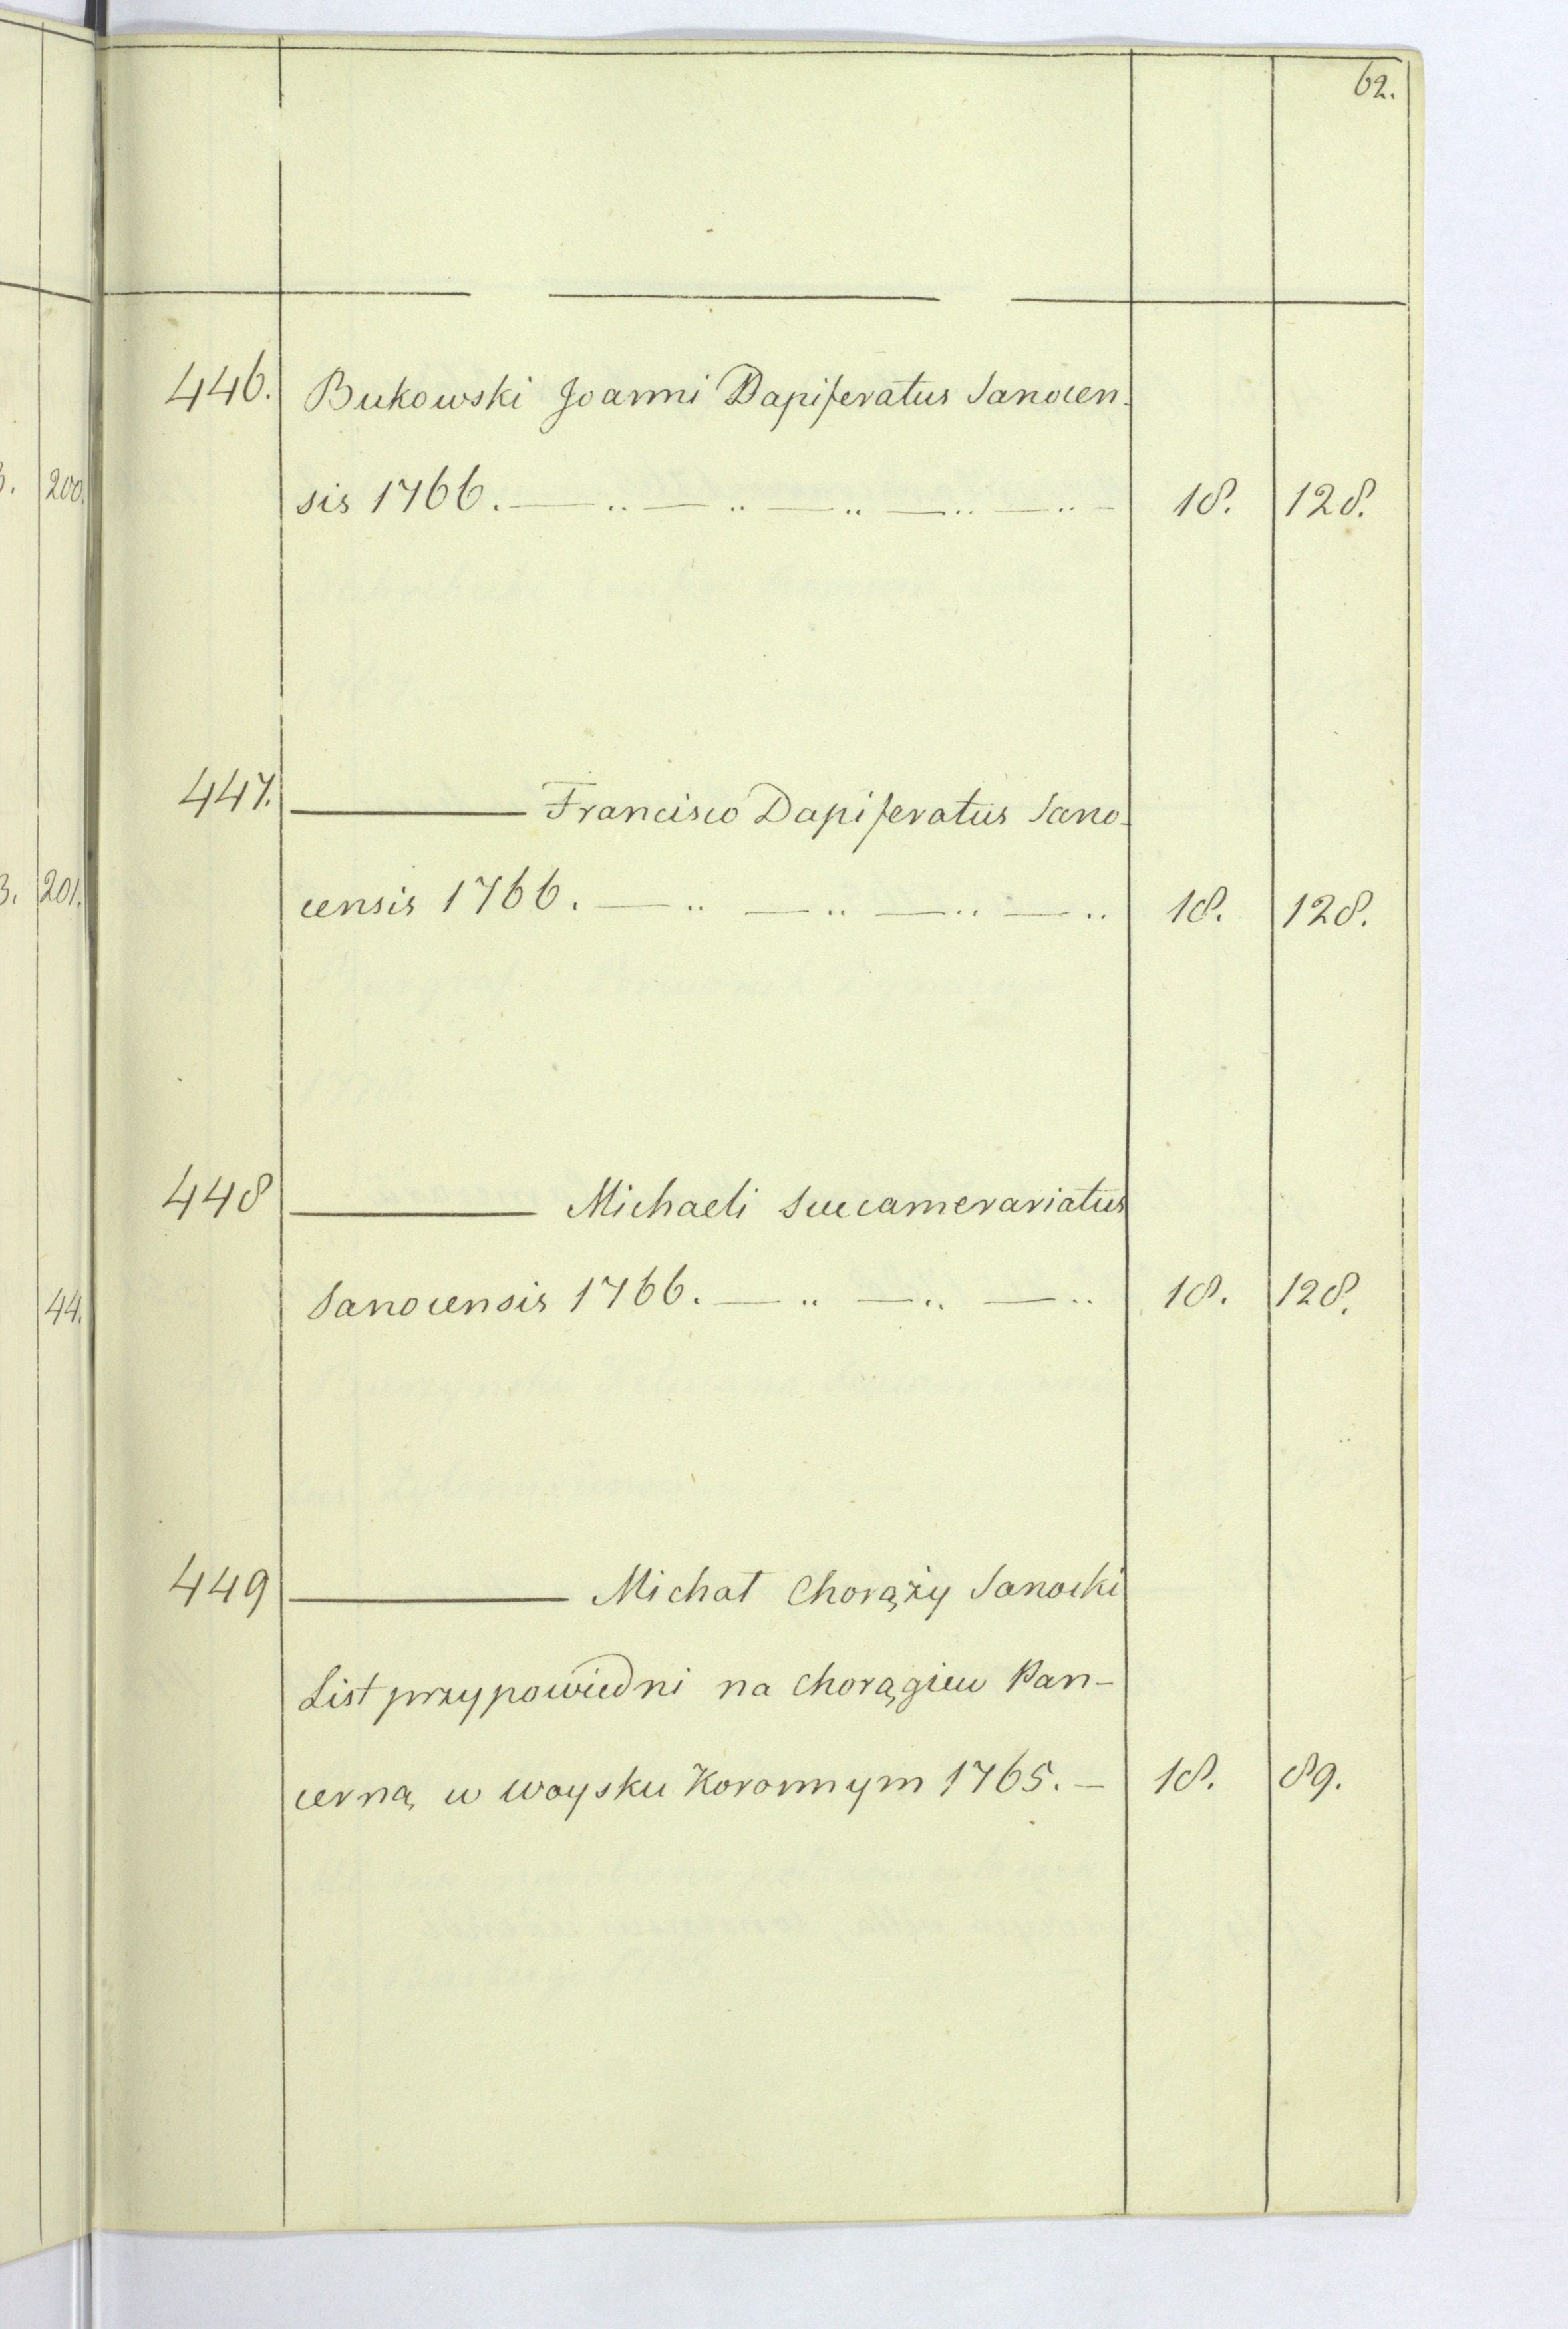 62.
446. Bukowski Joanni Dapiferatus Sanocen-
200. sis 1766. 18. 128.
447. Francisco Dapiferatus Sano-
3. 201. censis 1766. 18. 128.
448 Michaeli Succamerariatus
44. Sanocensis 1766. 18. 128.
449 Michał Chorąży Sanocki
List przypowiedni na Chorągiew Pan-
cerną w woysku Koronnym 1765. 18. 89.